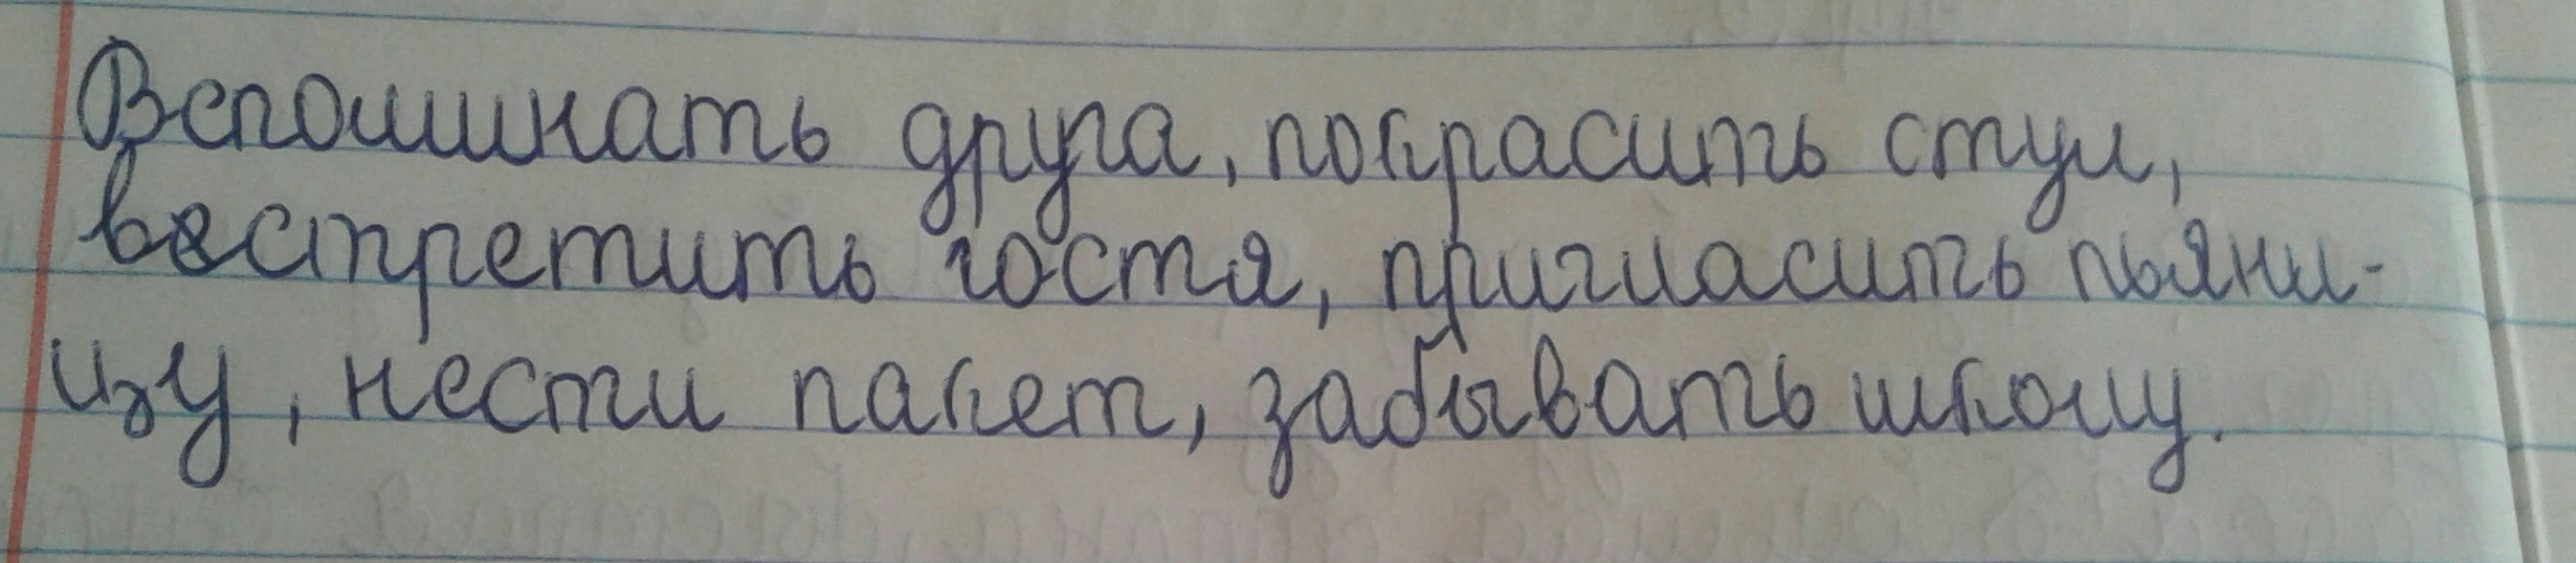 Вспоминать друга, покрасить стул,
встретить гостя, пригласить пьяни-
цу, нести пакет, забывать школу.